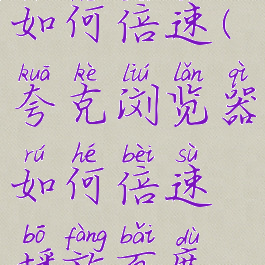 如何倍速(
kuā kè liú lǎn qì
夸克浏览器
rú hé bèi sù
如何倍速
bō fàng bǎi dù
播放百度